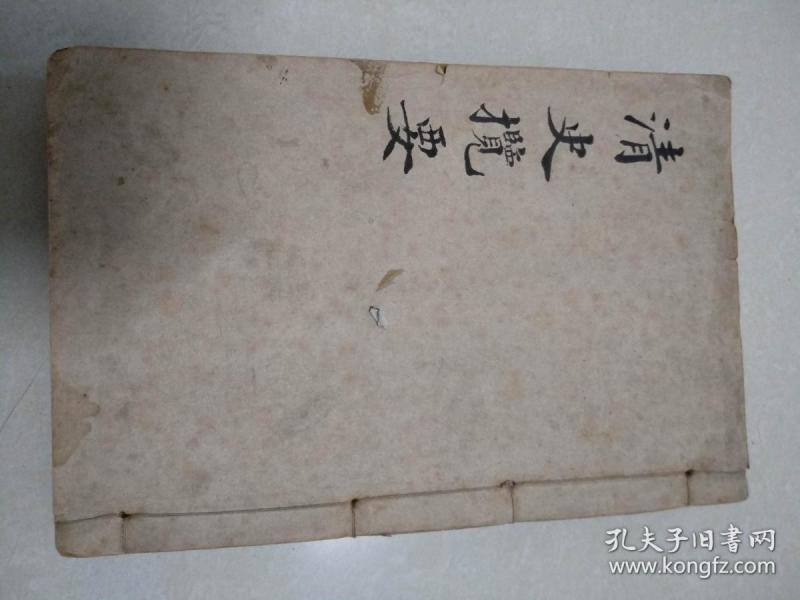 清史攬要
孔夫子旧書网
www.kongfz.com